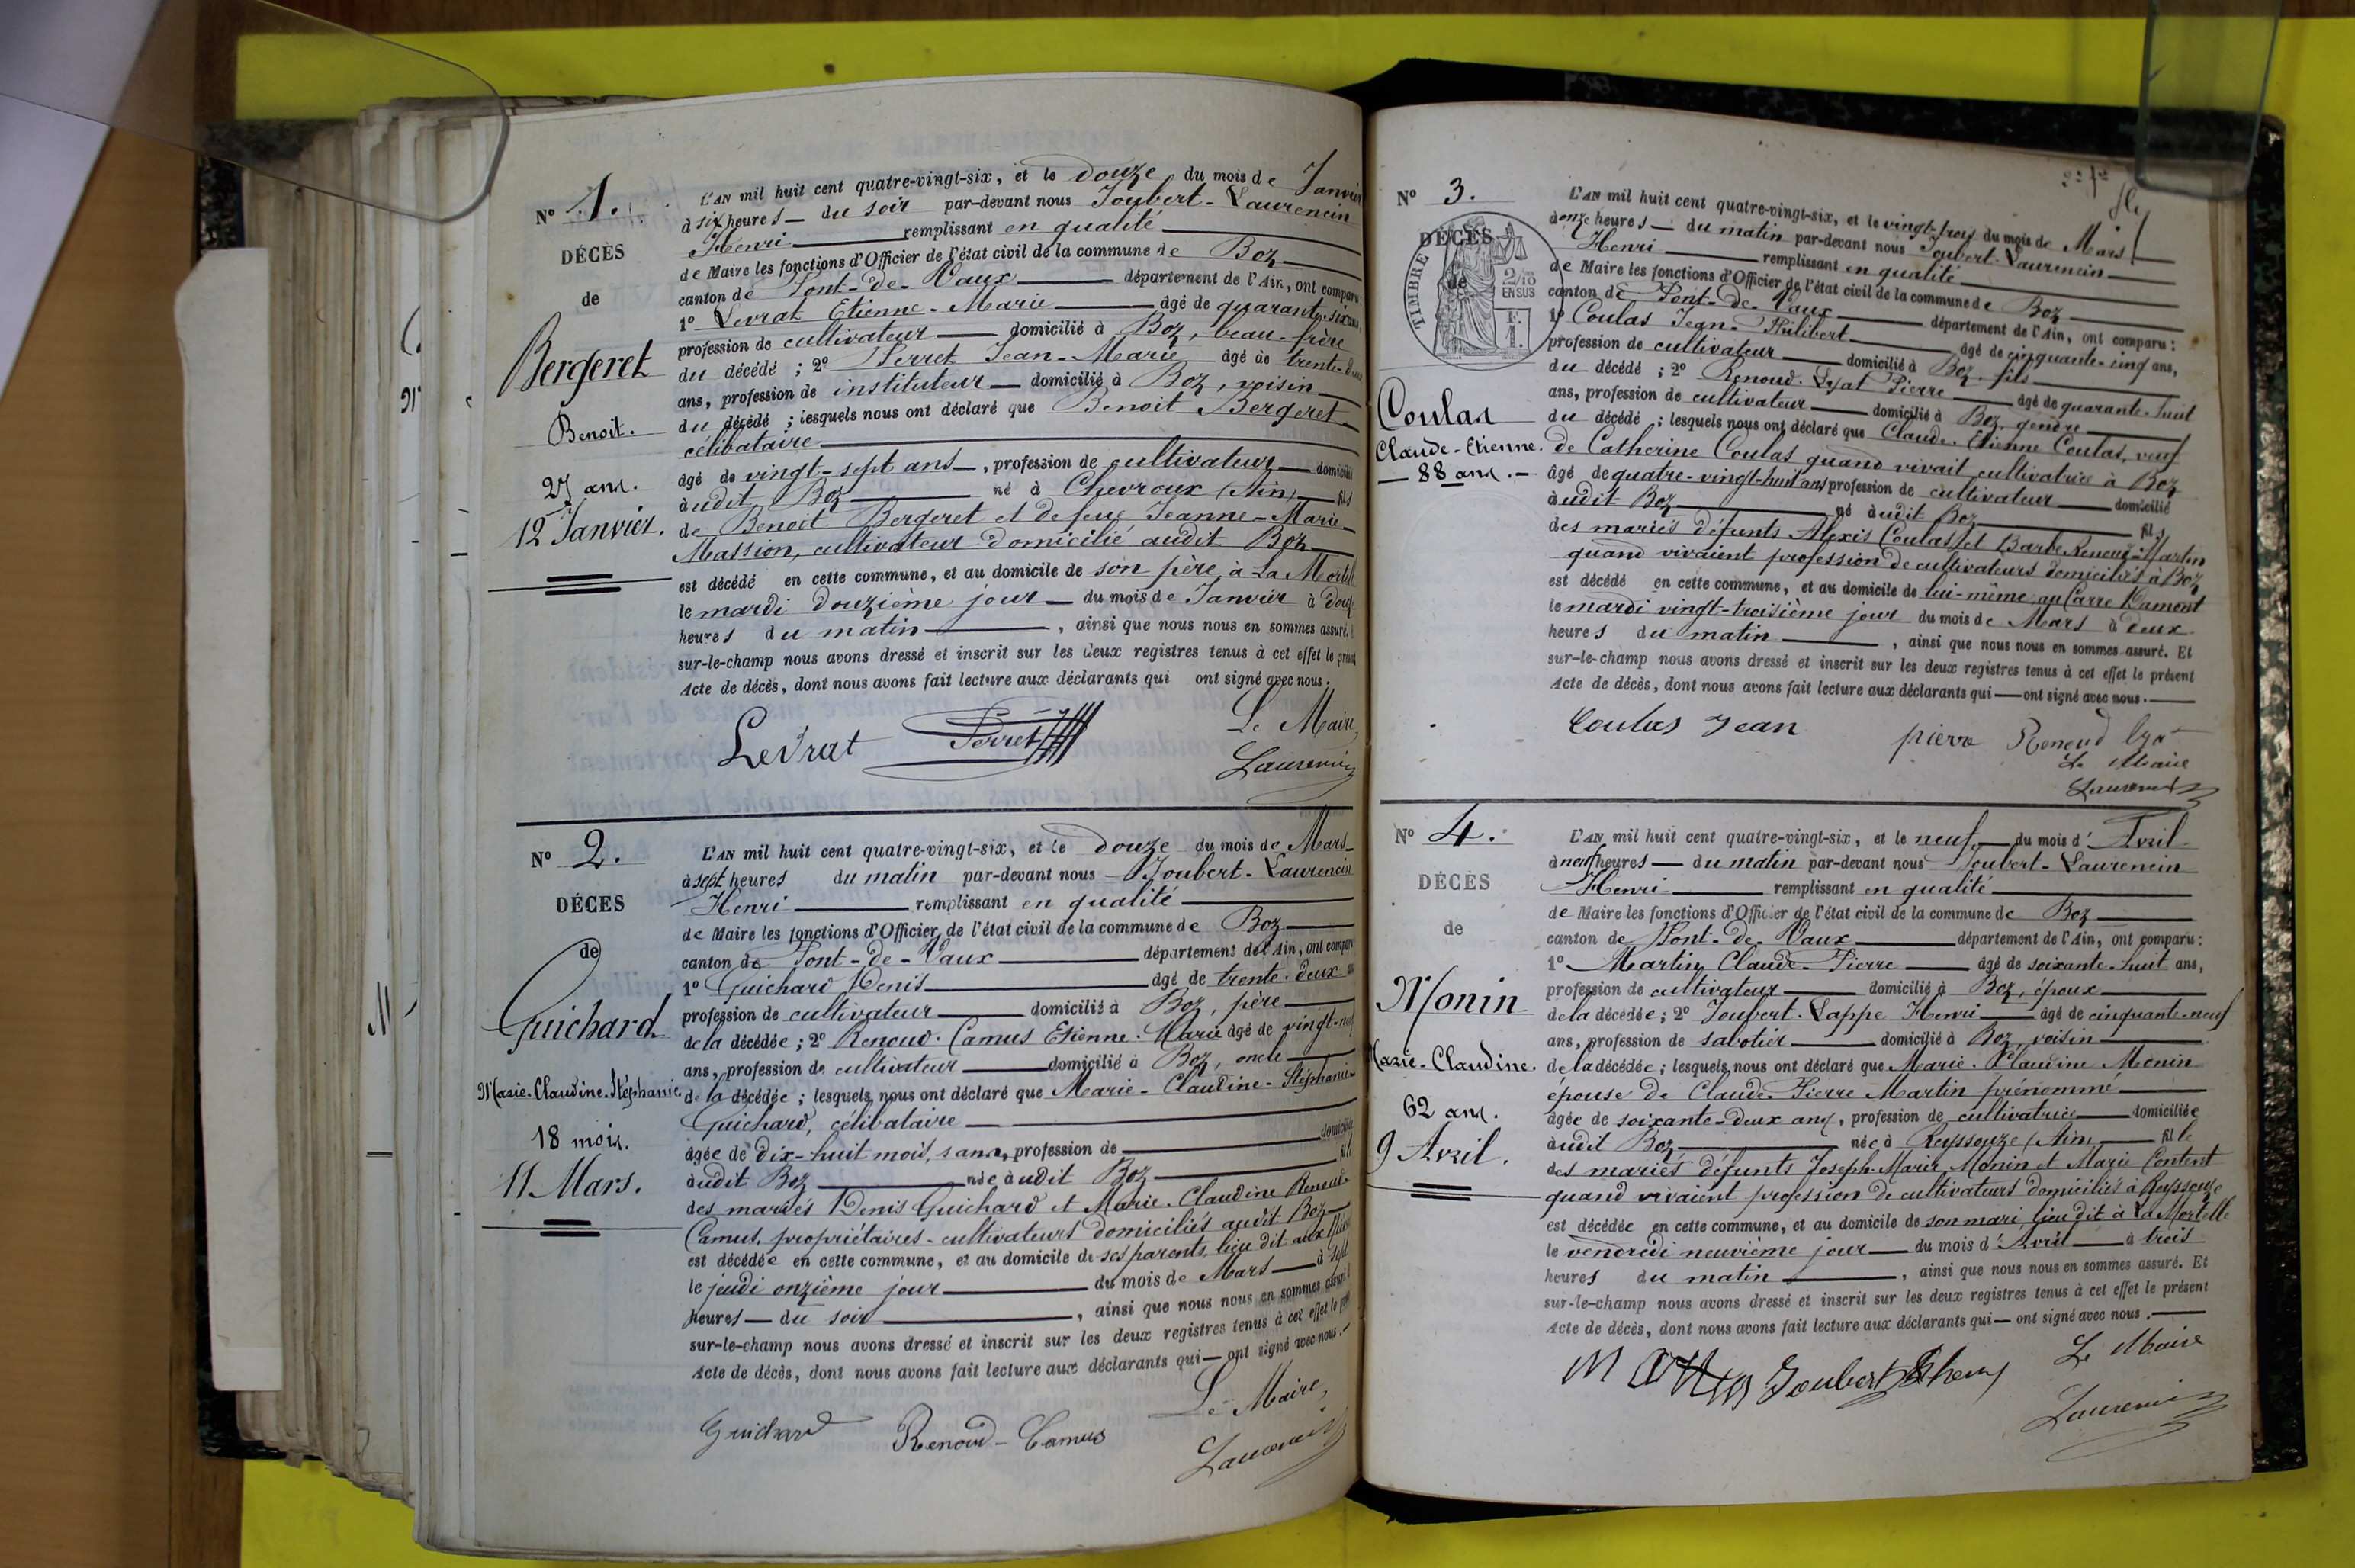 N° 1.
DÉCÈS
de
Bergeret
Benoit.
27 ans.
12 Janvier.
L'AN mil huit cent quatre-vingt-six, et le douze du mois de Janvier
à six heures — du soir par-devant nous Joubert-Laurencin
Henri remplissant en qualité
de Maire les fonctions d'Officier de l'état civil de la commune de Boz
canton de Pont-de-Vaux département de l'Ain, ont comparu:
1° Levrat Etienne-Marie âgé de quarante-six ans,
profession de cultivateur domicilié à Boz, beau-frère
du décédé ; 2° Perret Jean-Marie âgé de trente-deux
ans, profession de instituteur domicilié à Boz, voisin
du décédé ; lesquels nous ont déclaré que Benoit Bergeret
célibataire
âgé de vingt-sept ans, profession de cultivateur domicilié
audit Boz né à Chevroux (Ain) fils
de Benoit Bergeret et de feue Jeanne-Marie
Massion, cultivateur domicilié audit Boz
est décédé en cette commune, et au domicile de son père, à La Mortelle
le mardi douzième jour — du mois de Janvier à douze
heures du matin, ainsi que nous nous en sommes assuré.
sur-le-champ nous avons dressé et inscrit sur les deux registres tenus à cet effet le présent
Acte de décès, dont nous avons fait lecture aux déclarants qui ont signé avec nous.
Levrat Perret Le Maire,
Laurencin
N° 2.
DÉCES
de
Guichard
Marie-Claudine-Stéphanie
18 mois.
11 Mars.
L'AN mil huit cent quatre-vingt-six, et le douze du mois de Mars
à sept heures du matin par-devant nous Joubert-Laurencin
Henri remplissant en qualité
de Maire les fonctions d'Officier de l'état civil de la commune de Boz
canton de Pont-de-Vaux département de l'Ain, ont comparu
1° Guichard Denis âgé de trente-deux ans
profession de cultivateur domicilié à Boz, père
de la décédée ; 2° Renoud-Camus Etienne-Marie âgé de vingt-neuf
ans, profession de cultivateur domicilié à Boz, oncle
de la décédée ; lesquels nous ont déclaré que Marie-Claudine-Stéphanie
Guichard, célibataire
âgée de dix-huit mois, sans, profession de domiciliée
audit Boz née audit Boz fille
des mariés Denis Guichard et Marie-Claudine Renoud
Camus, propriétaires-cultivateurs domiciliés audit Boz
est décédée en cette commune, et au domicile de ses parents, lieu dit aux
le jeudi onzième jour du mois de Mars à sept
heures — du soir, ainsi que nous nous en sommes assuré
sur-le-champ nous avons dressé et inscrit sur les deux registres tenus à cet effet le
Acte de décès, dont nous avons fait lecture aux déclarants qui — ont signé avec nous.
Guichard Renoud-Camus Le Maire,
Laurencin
N° 3.
DÉCÈS
de
TIMBRE
2/10 EN SUS
Coulas
Claude-Etienne.
88 ans.
L'AN mil huit cent quatre-vingt-six, et le vingt-trois du mois de Mars
à onze heures — du matin par-devant nous Joubert-Laurencin
Henri remplissant en qualité
de Maire les fonctions d'Officier de l'état civil de la commune de Boz
canton de Pont-de-Vaux département de l'Ain, ont comparu :
1° Coulas Jean-Philibert âgé de cinquante-cinq ans,
profession de cultivateur domicilié à Boz, fils
du décédé ; 2° Renoud-Lyat Pierre âgé de quarante-huit
ans, profession de cultivateur domicilié à Boz, gendre
du décédé ; lesquels nous ont déclaré que Claude-Etienne Coulas, veuf
de Catherine Coulas quand vivait cultivatrice à Boz
âgé de quatre-vingt-huit ans profession de cultivateur domicilié
audit Boz né audit Boz fils
des mariés défunts Alexis Coulas et Barbe Renoud-Martin
quand vivaient profession de cultivateurs domiciliés à Boz
est décédé en cette commune, et au domicile de lui-même, au Carre Damont
le mardi vingt-troisième jour du mois de Mars à deux
heures du matin, ainsi que nous nous en sommes assuré. Et
sur-le-champ nous avons dressé et inscrit sur les deux registres tenus à cet effet le présent
Acte de décès, dont nous avons fait lecture aux déclarants qui — ont signé avec nous.
Coulas Jean pierre Renoud lyat
Le Maire
Laurencin
N° 4.
DÉCÈS
de
Monin
Marie-Claudine.
62 ans.
9 Avril.
L'AN mil huit cent quatre-vingt-six, et le neuf du mois d'Avril
à neuf heures — du matin par-devant nous Joubert-Laurencin
Henri remplissant en qualité
de Maire les fonctions d'Officier de l'état civil de la commune de Boz
canton de Pont-de-Vaux département de l'Ain, ont comparu :
1° Martin Claude-Pierre âgé de soixante-huit ans,
profession de cultivateur domicilié à Boz, époux
de la décédée ; 2° Joubert-Lappe Henri âgé de cinquante-neuf
ans, profession de sabotier domicilié à Boz, voisin
de la décédée ; lesquels nous ont déclaré que Marie-Claudine Monin
épouse de Claude-Pierre Martin prénommé
âgée de soixante-deux ans, profession de cultivatrice domiciliée
audit Boz née à Reyssouze (Ain) fille
des mariés défunts Joseph-Marie Monin et Marie Content
quand vivaient profession de cultivateurs domiciliés à Reyssouze
est décédée en cette commune, et au domicile de son mari, lieu dit à La Mortelle
le vendredi neuvième jour du mois d'Avril à trois
heures du matin, ainsi que nous nous en sommes assuré. Et
sur-le-champ nous avons dressé et inscrit sur les deux registres tenus à cet effet le présent
Acte de décès, dont nous avons fait lecture aux déclarants qui — ont signé avec nous.
Martin Joubert Le Maire
Laurencin